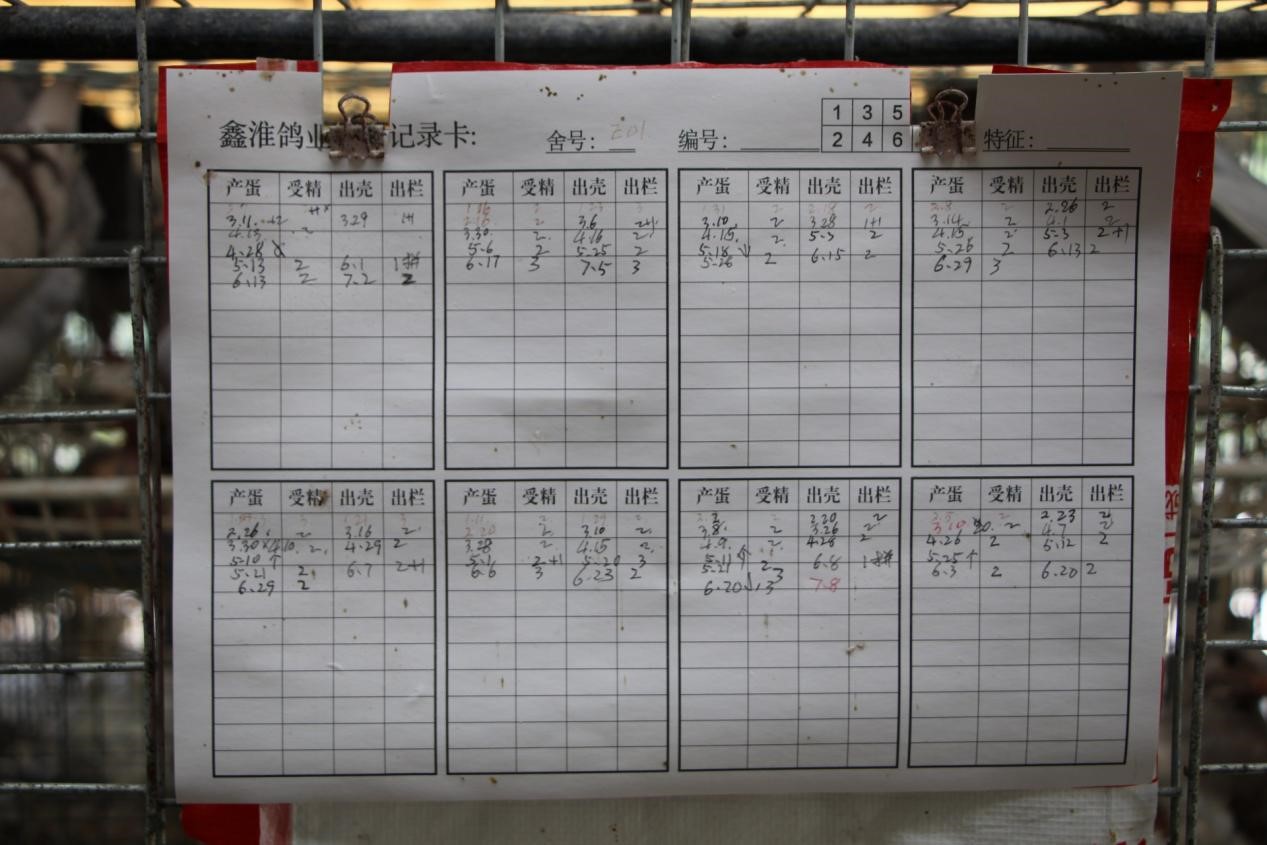 鑫淮鸽业 记录卡: 舍号: E01 编号: 1 3 5 特征:
2 4 6
产蛋 受精 出壳 出栏
3.11 +2 3.29 1+1
4.13 2
4.28 x
5.13 2 6.1 1
6.13 2 7.2 2
产蛋 受精 出壳 出栏
1.16 2
2.16 2 3.6 2+1
3.30 2 4.16 2
5.6 2 5.25 2
6.17 3 7.5 3
产蛋 受精 出壳 出栏
1.31 2 2.18 2
3.10 2 3.28 1+1
4.15 2 5.3 2
5.18 ↓
5.26 2 6.15 2
产蛋 受精 出壳 出栏
2.8 2 2.26 2
3.14 2 4.1 2
4.15 2 5.3 2+1
5.26 2 6.13 2
6.29 3
产蛋 受精 出壳 出栏
2.26 2 3.16 2
3.30 4.10 2 4.29 2
5.10 ↑
5.21 2 6.7 2+1
6.29 2
产蛋 受精 出壳 出栏
2.20 2 3.10 2
3.28 2 4.15 2
2+1 5.20 3
6.6 3 6.23 2
产蛋 受精 出壳 出栏
2.2 2.20 2
3.8 2 3.26 2
4.9 2 4.28 2
5.11 ↑
5.21 2 6.8 1
6.20 ↓ 3 7.8
产蛋 受精 出壳 出栏
2.23 2
3.10 2 4.7 2
4.26 2 5.12 2
5.25 ↑
6.3 2 6.20 2